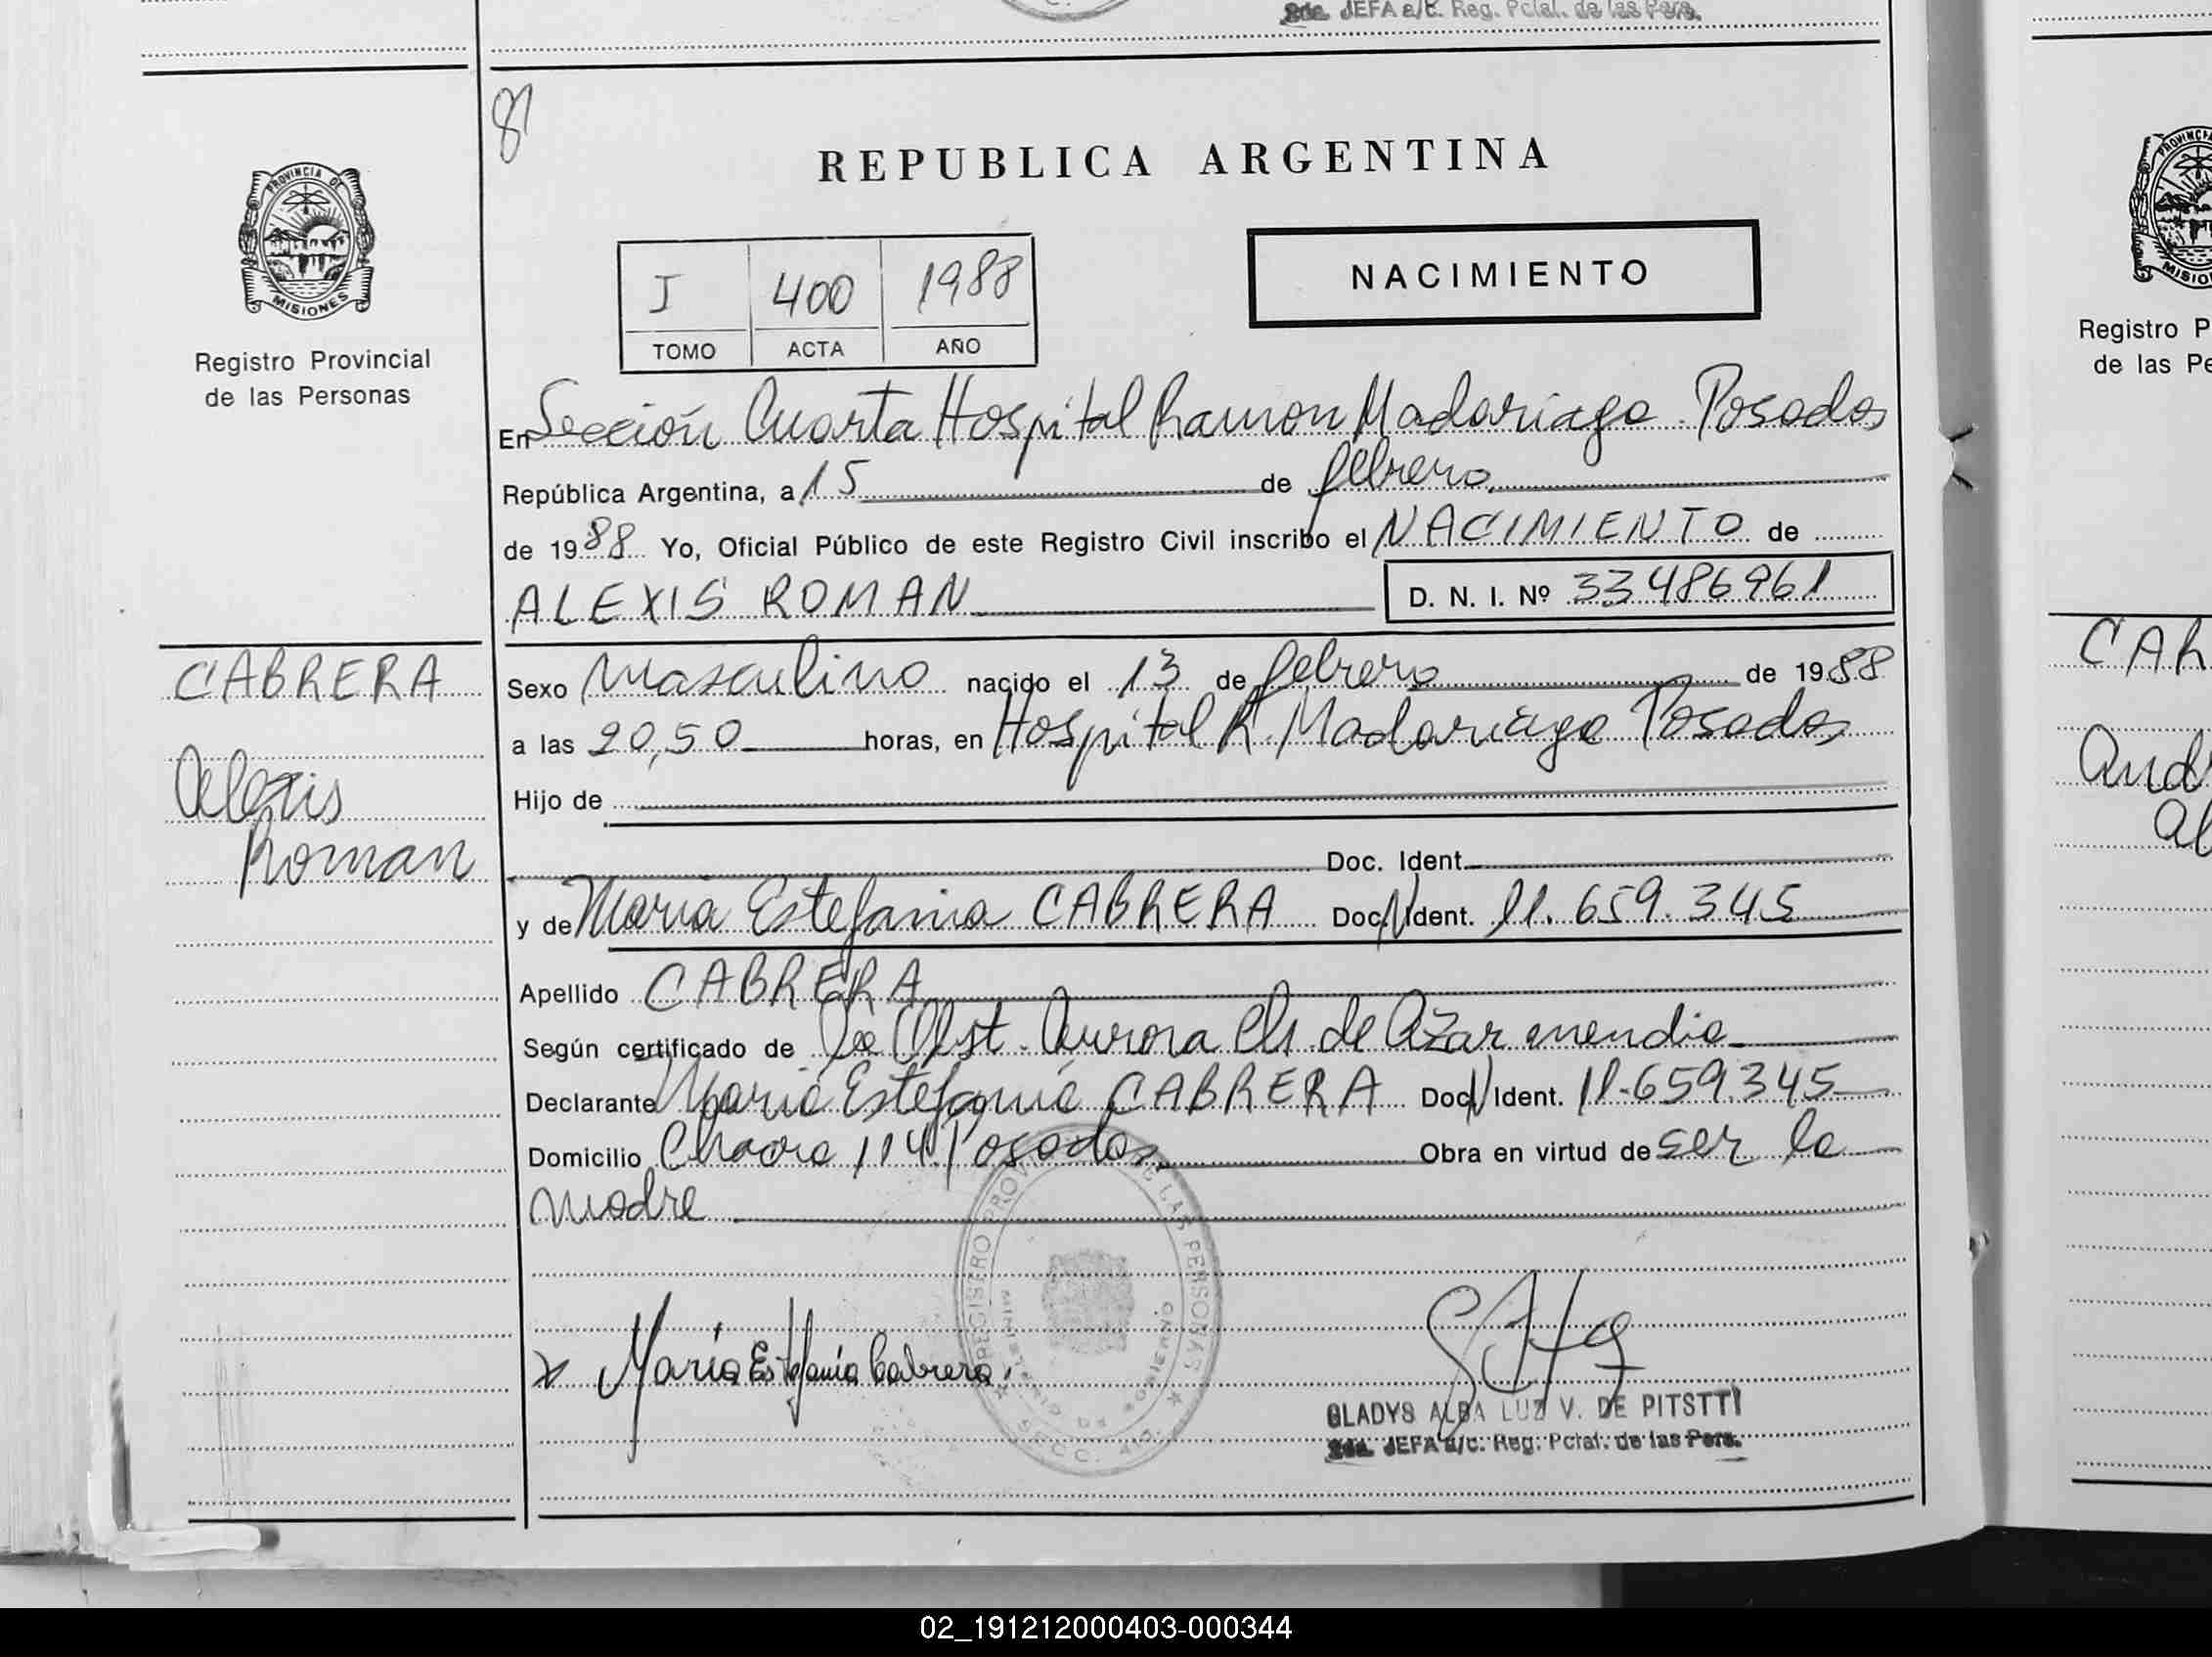 2da. JEFA a/c. Reg. Pcial. de las Pers.
8
PROVINCIA DE
MISIONES
Registro Provincial
de las Personas
CABRERA
Alexis
Roman
REPUBLICA ARGENTINA
I 400 1988
TOMO ACTA AÑO
NACIMIENTO
En Sección Cuarta Hospital Ramon Madariaga Posadas
República Argentina, a 15 de febrero
de 1988 Yo, Oficial Público de este Registro Civil inscribo el NACIMIENTO de
ALEXIS ROMAN D. N. I. Nº 33486961
Sexo Masculino nacido el 13 de febrero de 1988
a las 20,50 horas, en Hospital R. Madariaga Posadas
Hijo de
Doc. Ident.
y de Maria Estefania CABRERA Doc. Ident. 11.659.345
Apellido CABRERA
Según certificado de La Obst. Aurora Ch de Azarmendia
Declarante Maria Estefania CABRERA Doc. Ident. 11.659.345
Domicilio Chacra 114. Posadas Obra en virtud de ser la
madre
REGISTRO PROV DE LAS PERSONAS
MINISTERIO DE GOBIERNO
SECC. 4ta.
x María Estefanía Cabrera.
GLADYS ALBA LUZ V. DE PITSTTI
2da. JEFA a/c. Reg. Pcial. de las Pers.
PROVINCIA
MISIO
Registro P
de las Pe
CAR
And
Al
02_191212000403-000344